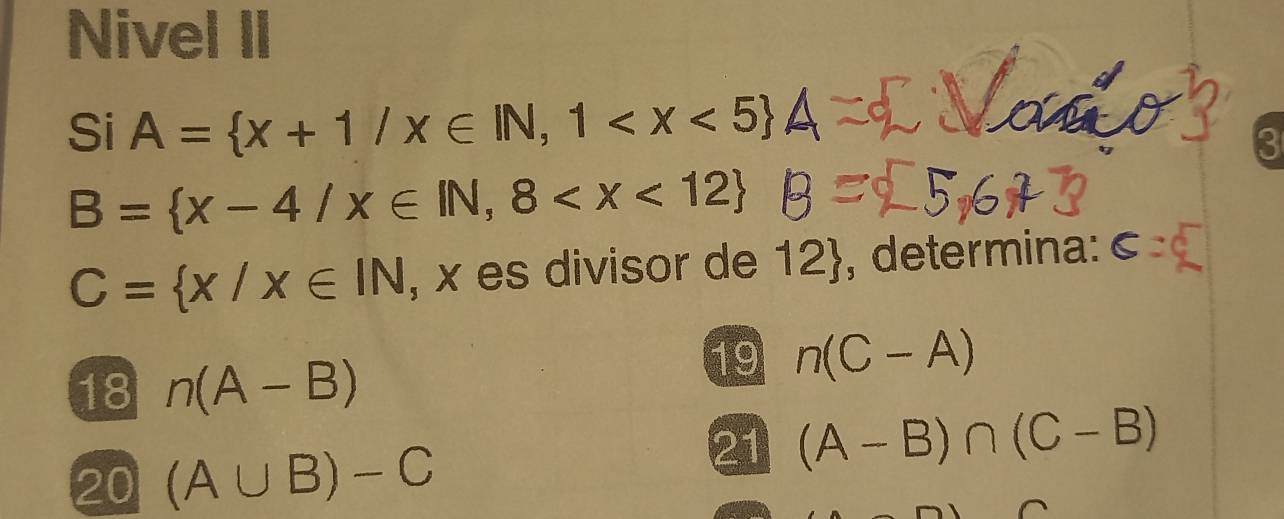 Nivel II
Si A = {x + 1 / x ∈ IN, 1 < x < 5} A = { Vacío }
3
B = {x − 4 / x ∈ IN, 8 < x < 12} B = {5,6,7}
C = {x / x ∈ IN, x es divisor de 12}, determina: C = {
18 n(A − B)
19 n(C − A)
20 (A ∪ B) − C
21 (A − B) ∩ (C − B)